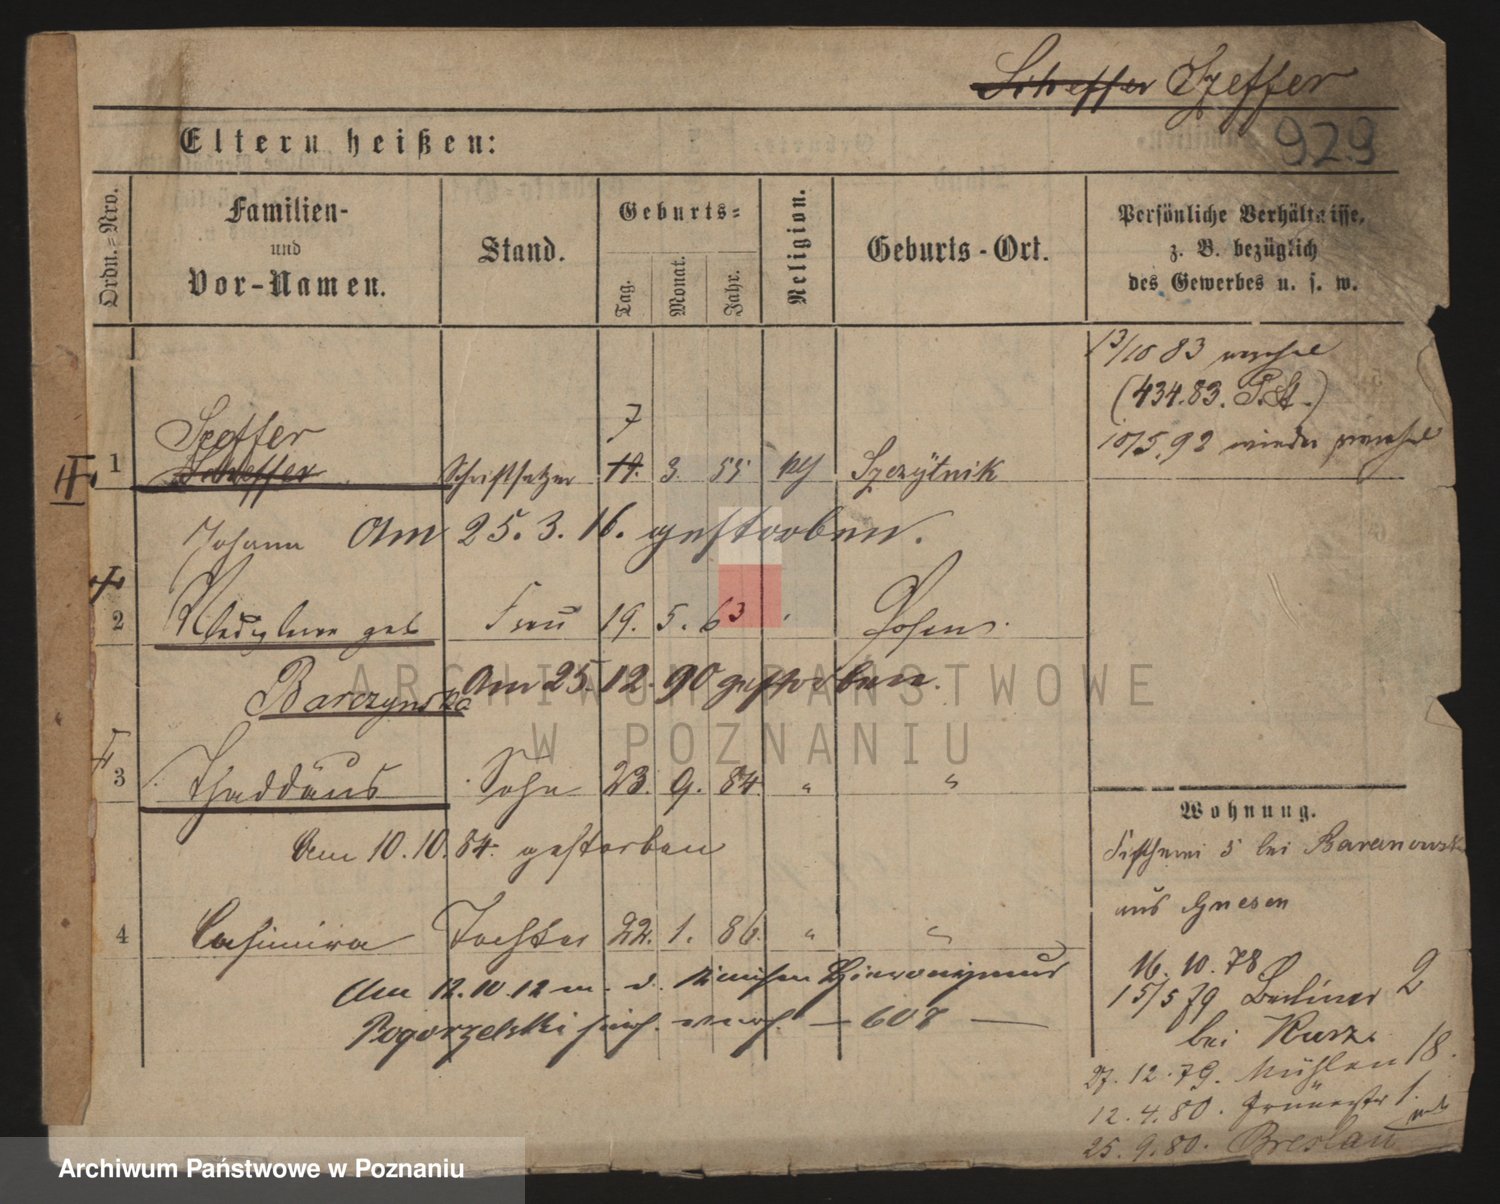 Scheffer Szeffer
Eltern heißen:
929
Ordn.=Nro.
Familien-
und
Vor-Namen.
Stand.
Geburts=
Tag.
Monat.
Jahr.
Religion.
Geburts-Ort.
Persönliche Verhältnisse,
z. B. bezüglich
des Gewerbes u. s. w.
13/10 83
(434.83. P. St.)
10/5.92 wieder
Szeffer
7
1 Scheffer Schriftsetzer 11. 3. 55 Szczytnik
Johann Am 25. 3. 16. gestorben.
2 geb Frau 19. 5. 63 Posen.
Barczynska Am 25. 12. 90 gestorben.
3 Thaddäus Sohn 23. 9. 84. " "
Am 10. 10. 84. gestorben
4 Casimira Tochter 22. 1. 86. " "
Am 12.10.12 m. d. Hieronymus
Pogorzelski verh. — 607 —
Wohnung.
Fischerei 5 bei Baranowski
aus Gnesen
16. 10. 78
15/5 79 Berliner 2
bei Kurz.
27. 12. 79. Mühlen 18.
12. 4. 80. 1.
25. 9. 80. Breslau
ARCHIWUM PAŃSTWOWE
W POZNANIU
Archiwum Państwowe w Poznaniu